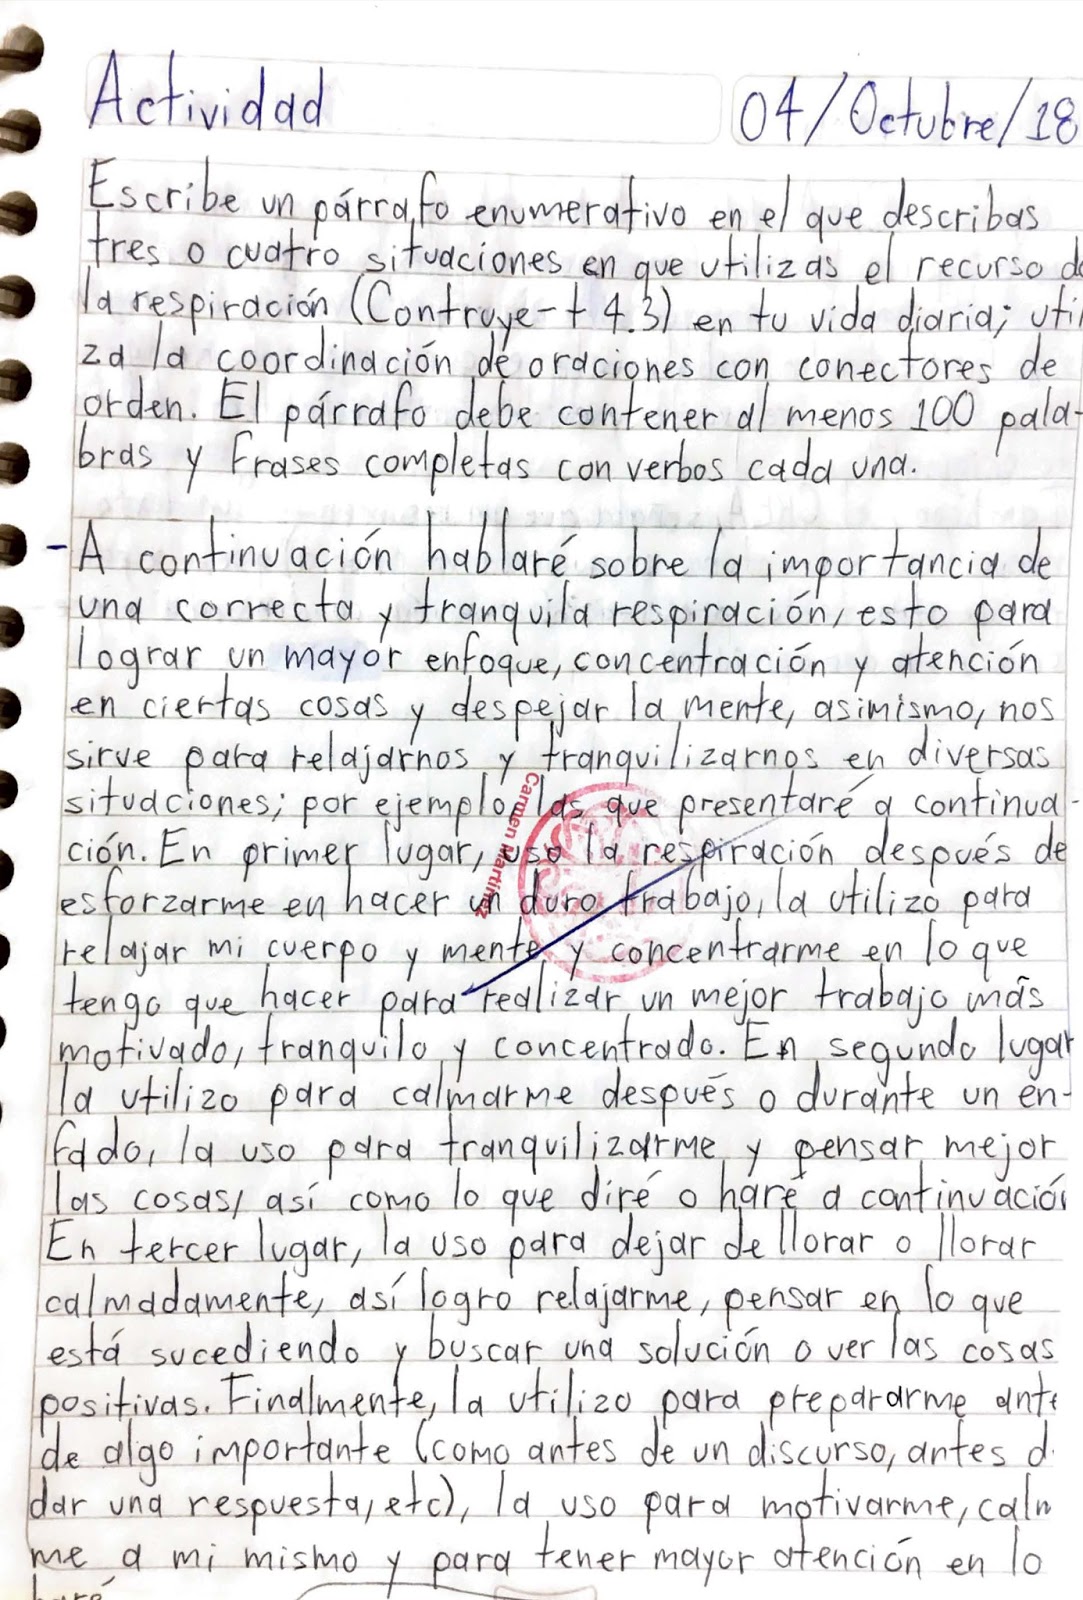 Actividad
04/Octubre/18
Escribe un párrafo enumerativo en el que describas
tres o cuatro situaciones en que utilizas el recurso de
la respiración (Contruye-t 4.3) en tu vida diaria; utili
za la coordinación de oraciones con conectores de
orden. El párrafo debe contener al menos 100 pala-
bras y frases completas con verbos cada una.
- A continuación hablaré sobre la importancia de
una correcta y tranquila respiración, esto para
lograr un mayor enfoque, concentración y atención
en ciertas cosas y despejar la mente, asimismo, nos
sirve para relajarnos y tranquilizarnos en diversas
situaciones; por ejemplo, las que presentaré a continua-
ción. En primer lugar, uso la respiración después de
esforzarme en hacer un duro trabajo, la utilizo para
relajar mi cuerpo y mente, y concentrarme en lo que
tengo que hacer para realizar un mejor trabajo más
motivado, tranquilo y concentrado. En segundo lugar
la utilizo para calmarme después o durante un en-
fado, la uso para tranquilizarme y pensar mejor
las cosas, así como lo que diré o haré a continuación
En tercer lugar, la uso para dejar de llorar o llorar
calmadamente, así logro relajarme, pensar en lo que
está sucediendo y buscar una solución o ver las cosas
positivas. Finalmente, la utilizo para prepararme ante
de algo importante (como antes de un discurso, antes d
dar una respuesta, etc), la uso para motivarme, calm
me a mi mismo y para tener mayor atención en lo
haré
Carmen Martínez